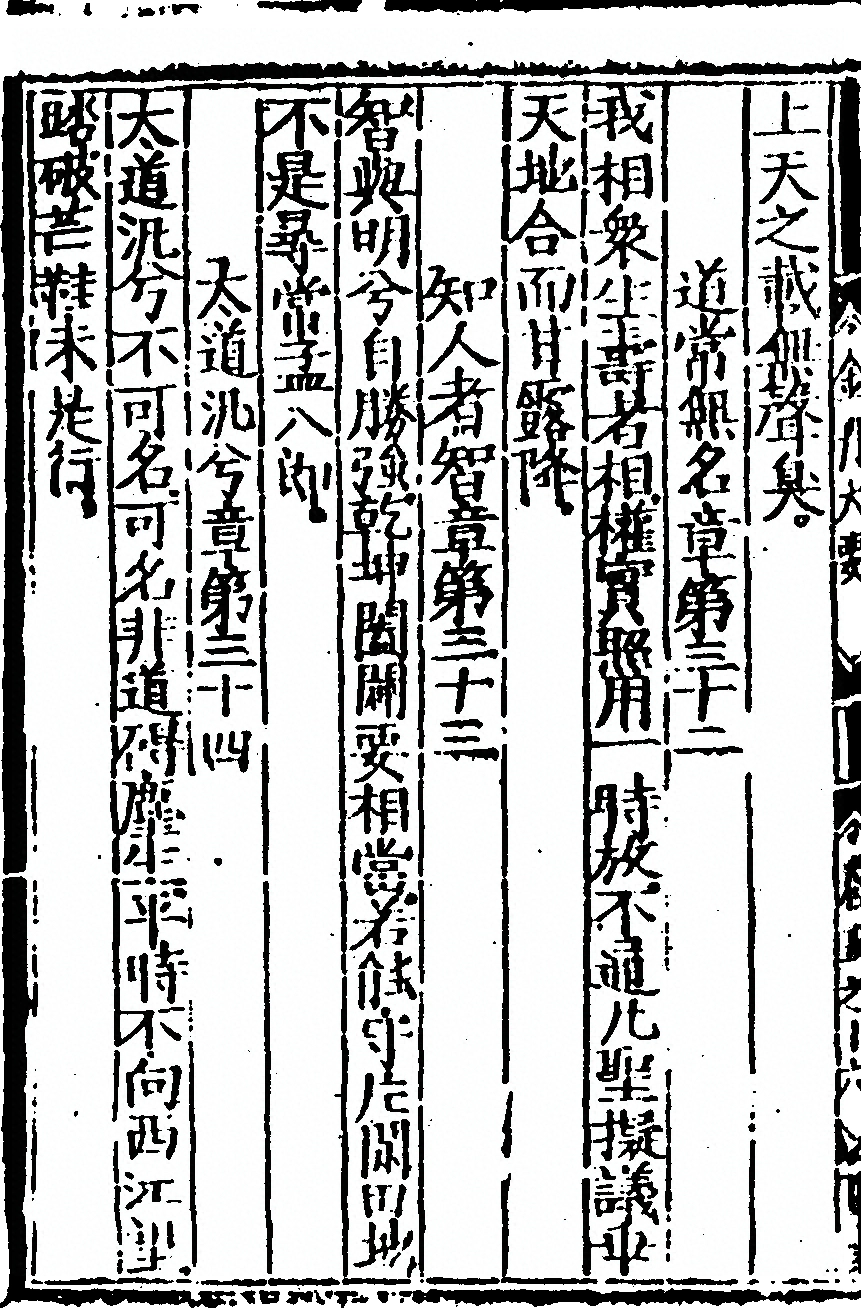 上天之載無聲臭。
道常無名章第三十二
我相衆生壽者相權實照用一時放不通凡聖擬議中
天地合而甘露降
知人者智章第三十三
智與明兮自勝強乾坤闔闢要相當若能守片閑田地
不是尋常孟八郎
太道汎兮章第三十四
太道汎兮不可名可名非道碍塵生平時不向西江望
踏破芒鞋未是行